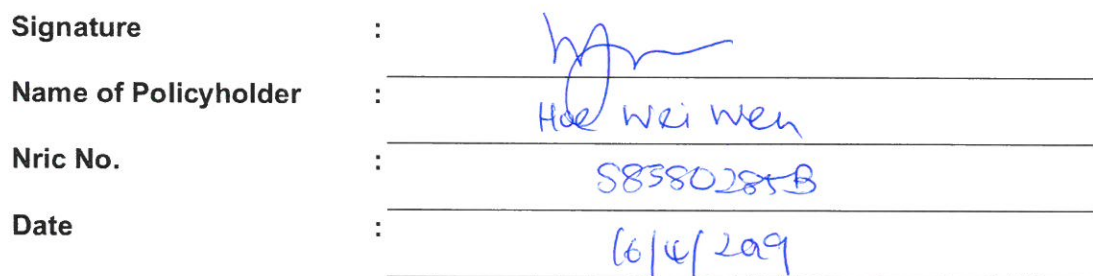 Signature :
Name of Policyholder : Hoe Wei Wen
Nric No. : S8380285B
Date : 16/4/2019